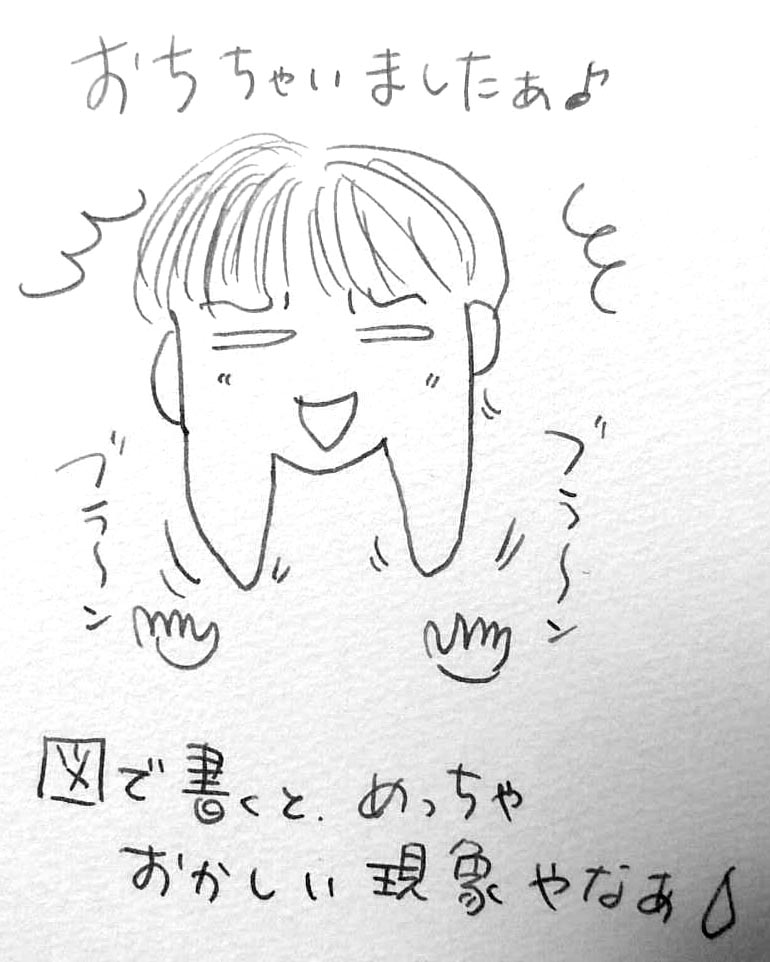 おちちゃいましたぁ♪
ブラ〜ン
ブラ〜ン
図で書くと、めっちゃ
おかしい現象やなぁ